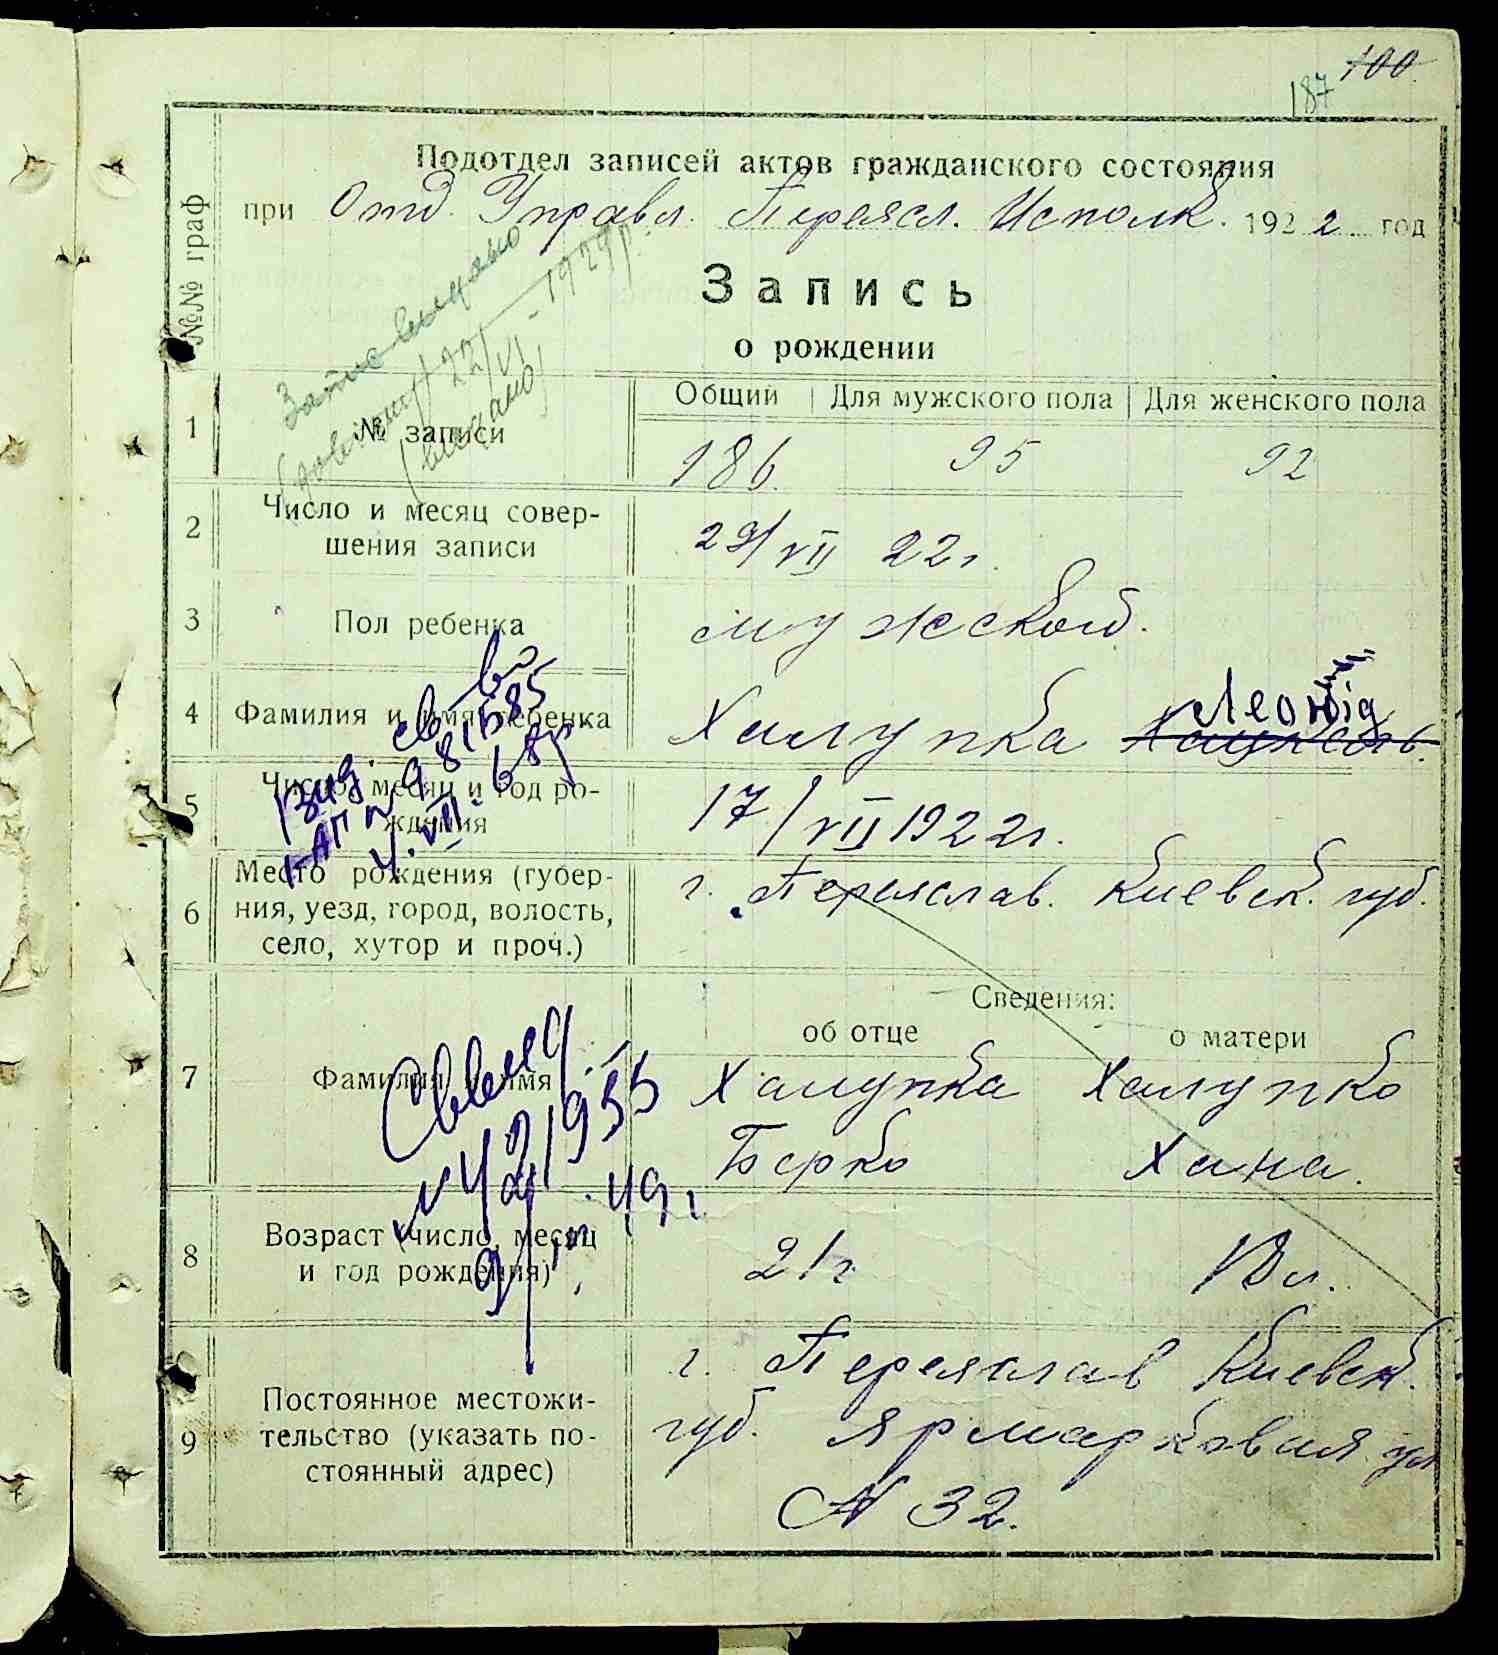 187 100.
Подотдел записей актов гражданского состояния
при Отд. Управл. Переясл. Исполк. 1922 год
Запись
о рождении
№№ граф
1 № записи
Общий Для мужского пола Для женского пола
186. 95 92
22/VI - 1929р.
2 Число и месяц совер-
шения записи
29/VII 22г.
3 Пол ребенка мужской.
4 Фамилия и имя ребенка Халупка Леонід
5 Число, месяц и год ро-
ждения
17/VII 1922г.
4.VII.68р
6 Место рождения (губер-
ния, уезд, город, волость,
село, хутор и проч.)
г. Переяслав. Киевск. губ.
Сведения:
об отце о матери
7 Фамилия и имя
Халупка Халупко
Берко Хана.
8 Возраст (число, месяц
и год рождения)
21г 18л.
9 Постоянное местожи-
тельство (указать по-
стоянный адрес)
г. Переяслав Киевск.
губ. Ярмарковая ул
N 32.